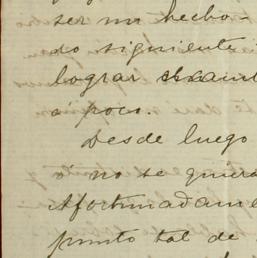 ser un hecho
do siguiente
lograr
á poco.
Desde luego
no se quiera
Afortunadame
punto tal de